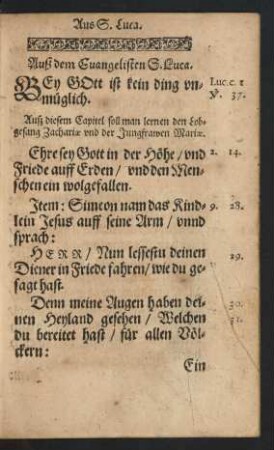 Aus S. Luca.
Auß dem Euangelisten S. Luca.
BEy GOtt ist kein ding vn- Luc. c. 1
müglich. ℣. 37.
Auß diesem Capitel soll man lernen den Lob-
gesang Zachariæ vnd der Jungfrawen Mariæ.
Ehre sey Gott in der Höhe / vnd 2. 14.
Friede auff Erden / vnd den Men-
schen ein wolgefallen.
Item: Simeon nam das Kind- 9. 28.
lein Jesus auff seine Arm / vnnd
sprach:
HERR / Nun lessestu deinen 29.
Diener in Friede fahren / wie du ge-
sagt hast.
Denn meine Augen haben dei- 30.
nen Heyland gesehen / Welchen 31.
du bereitet hast / für allen Völ-
ckern:
Ein